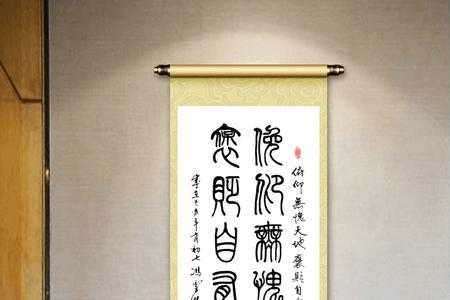 俯仰無愧天地褒貶自
俛仰無愧
褒貶自有
初七